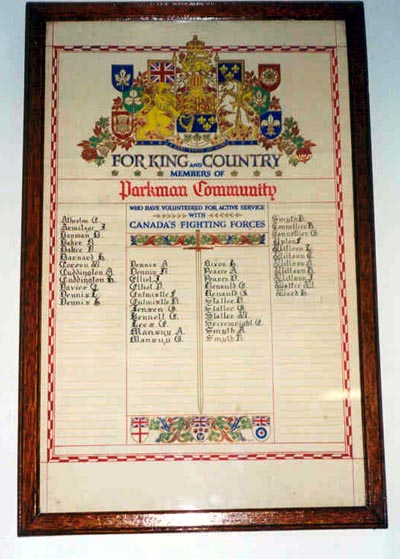 FOR KING AND COUNTRY
MEMBERS OF
Parkman Community
WHO HAVE VOLUNTEERED FOR ACTIVE SERVICE
WITH
CANADA'S FIGHTING FORCES
Atherton C.
Armitage J.
Bayman D.
Baker A.
Baker D.
Barnard H.
Coreen W.
Cuddington A.
Cuddington R.
Davies C.
Dennis L.
Dennis L.
Dennis A.
Dennis N.
Elliot J.
Elliot D.
Entwistle F.
Entwistle N.
Jensen G.
Kennett G.
Lees G.
Mansuy A.
Mansuy G.
Nixon H.
Pearce A.
Pearce D.
Renauld C.
Renauld G.
Statler D.
Statler G.
Statler W.
Sevewright C.
Smyth A.
Smyth D.
Smyth R.
Connellier R.
Connellier G.
Upton F.
Willson L.
Willson C.
Willson J.
Willson R.
Willson J.